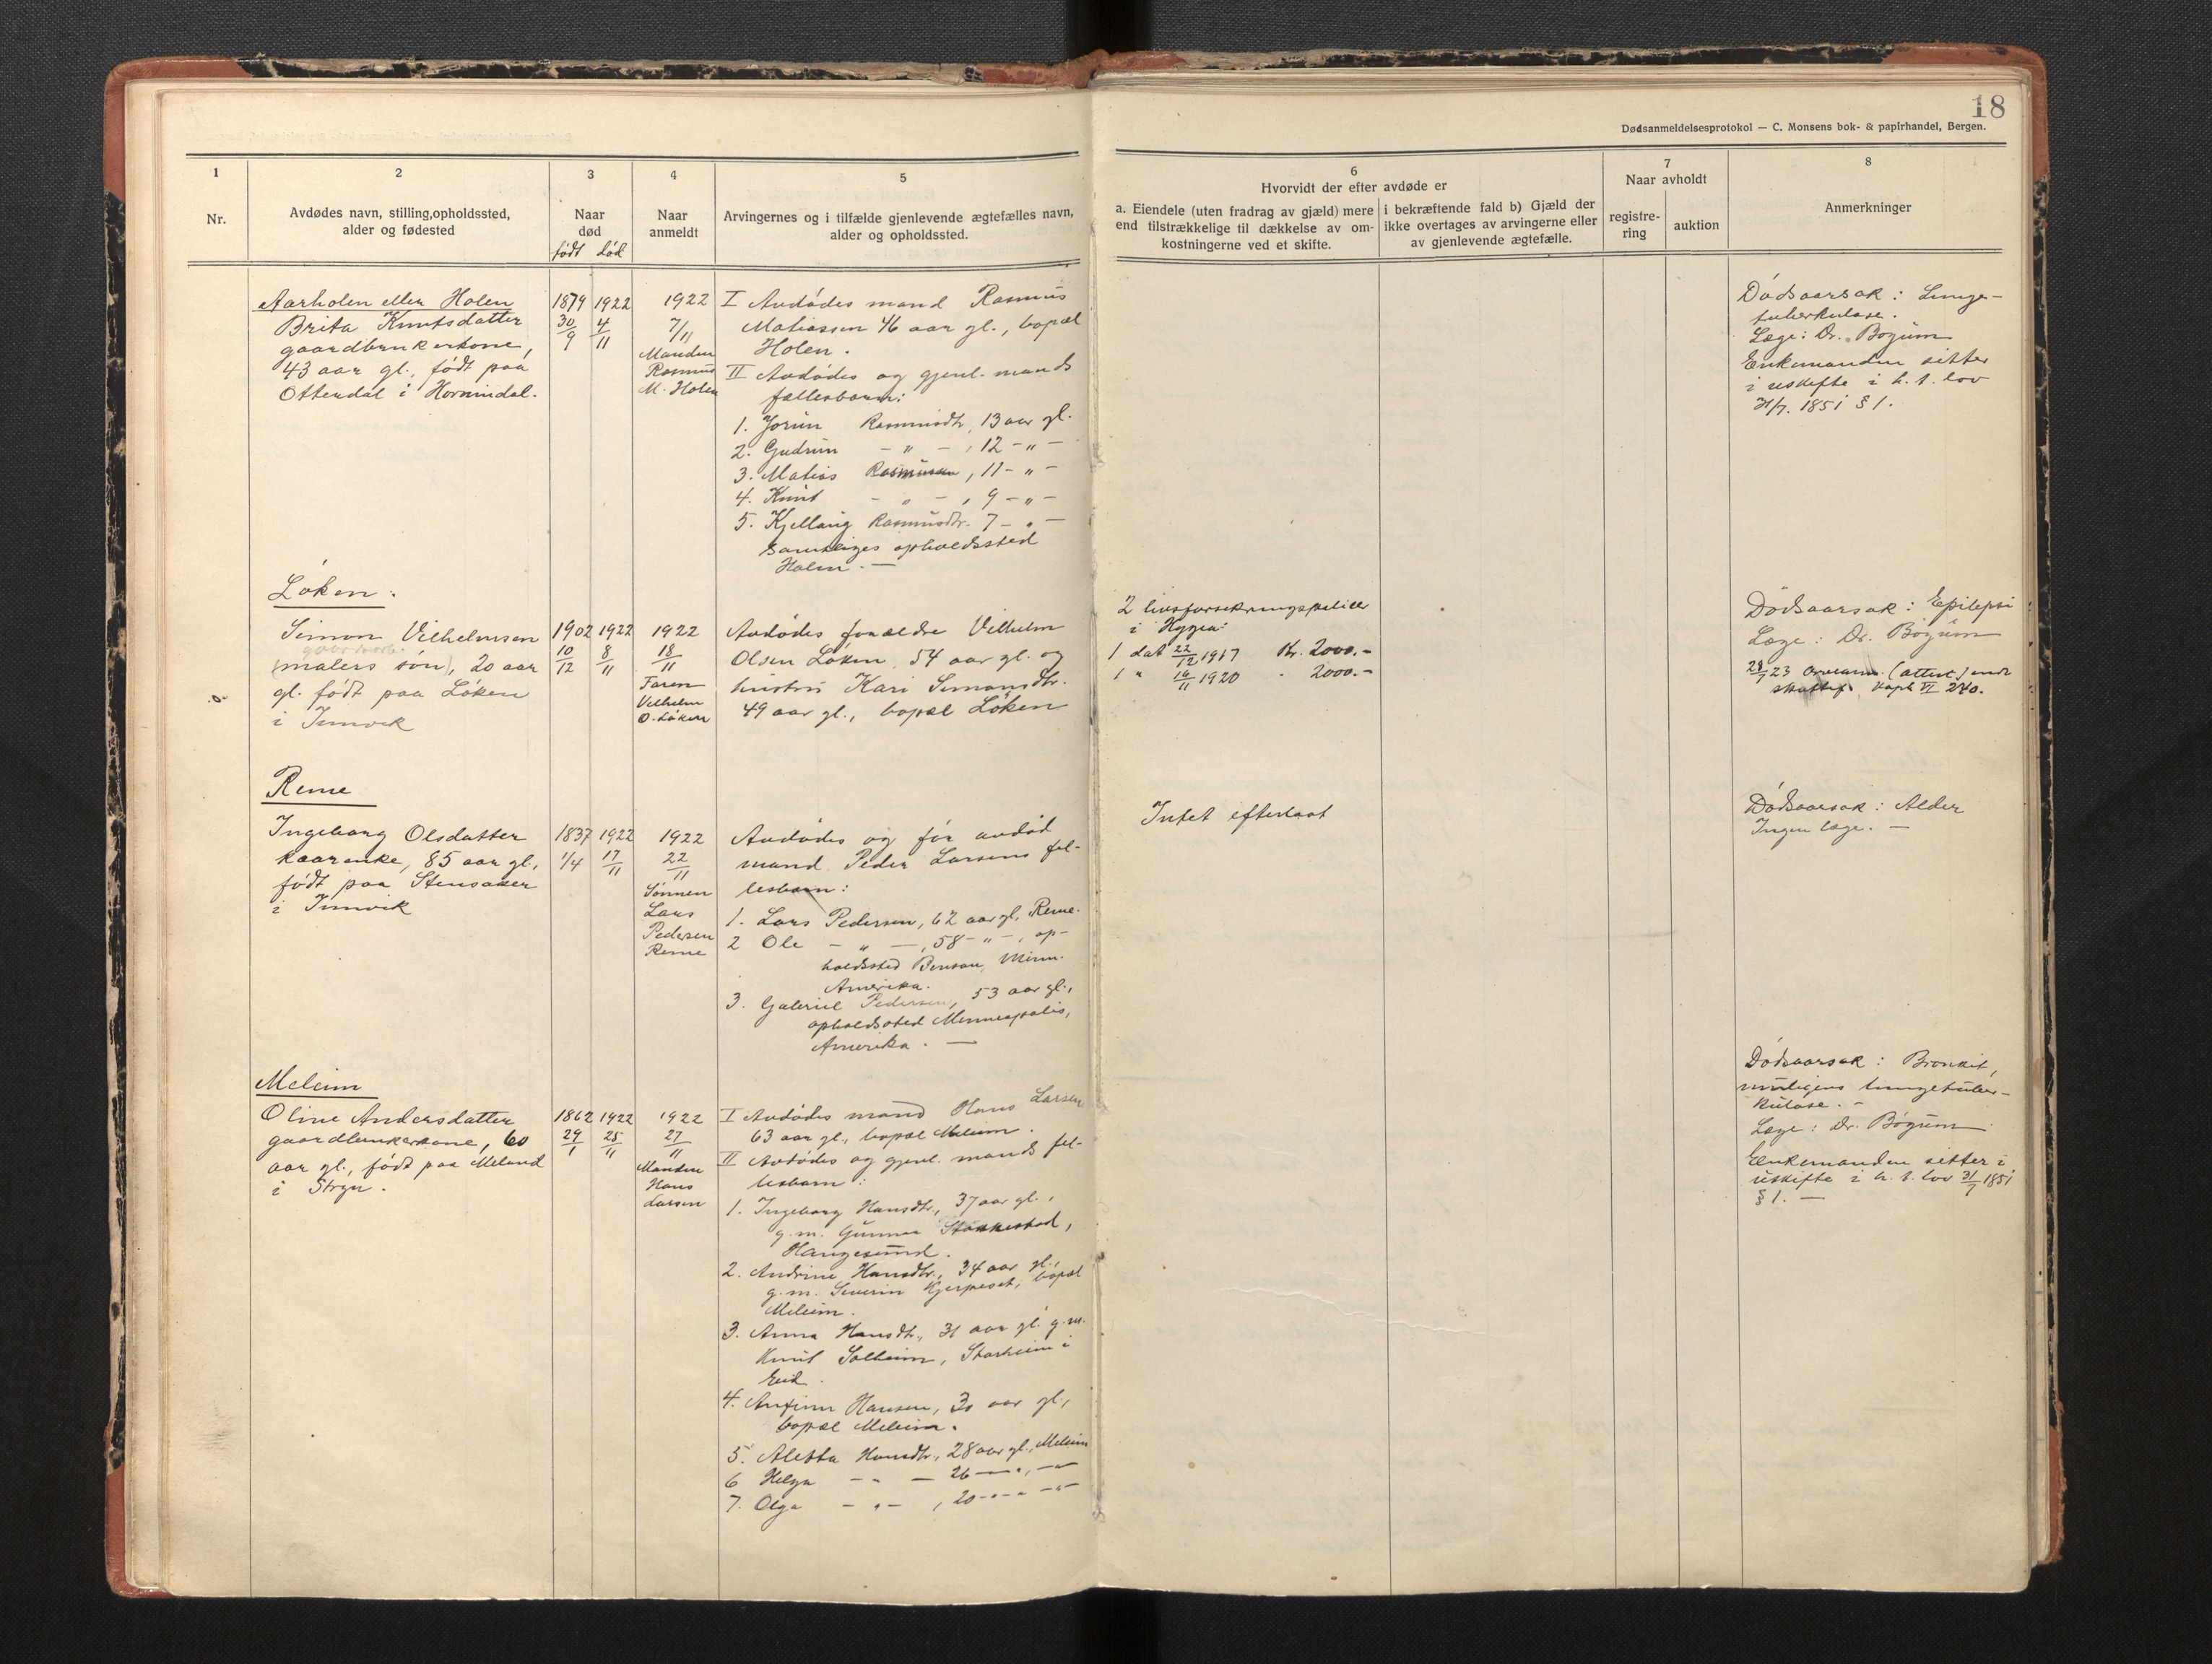 18
Dødsanmeldelsesprotokol — C. Monsens bok- & papirhandel, Bergen.
1
Nr.
2
Avdødes navn, stilling, opholdssted,
alder og fødested
3
Naar
død
født død
4
Naar
anmeldt
5
Arvingernes og i tilfælde gjenlevende ægtefælles navn,
alder og opholdssted.
6
Hvorvidt der efter avdøde er
a. Eiendele (uten fradrag av gjæld) mere
end tilstrækkelige til dækkelse av om-
kostningerne ved et skifte.
i bekræftende fald b) Gjæld der
ikke overtages av arvingerne eller
av gjenlevende ægtefælle.
7
Naar avholdt
registre-
ring
auktion
8
Anmerkninger
Aarholen eller Holen
Brita Knutsdatter
gaardbrukerkone,
43 aar gl., født paa
Ottendal i Hornindal.
1879 1922
30/9 4/11
1922
7/11
Manden
Rasmus
M. Holen
I Avdødes mand Rasmus
Matiassen 46 aar gl., bopæl
Holen.
II Avdødes og gjenl. mands
fællesbarn:
1. Jorun Rasmusdtr, 13 aar gl.
2. Gudrun — " — , 12 - " -
3. Matias Rasmussen, 11 - " -
4. Knut - " - , 9 - " -
5. Kjellaug Rasmusdtr. 7 - " -
samtliges opholdssted
Holen. —
Dødsaarsak: Lunge-
tuberkulose.
Læge: Dr. Bøgum
Enkemanden sitter
i uskifte i h. t. lov
31/7. 1851 § 1.
Løken:
Simon Vilhelmsen
(malers søn), 20 aar
gl. født paa Løken
i Innvik
1902 1922
10/12 8/11
1922
18/11
Faren
Vilhelm
O. Løken
Avdødes forældre Vilhelm
Olsen Løken, 54 aar gl. og
hustru Kari Simonsdtr.
49 aar gl., bopæl Løken
2 livsforsikringspoliser
i Hygea:
1 dat 22/12 1917 Kr. 2000.-
1 " 16/11 1920 " 2000.-
Dødsaarsak: Epilepsi
Læge: Dr. Bøgum
28/7 23 (attest)
VI 240.
Reme
Ingeborg Olsdatter
kaarenke, 85 aar gl.,
født paa Stensaker
i Innvik
1837 1922
1/4 17/11
1922
22/11
Sønnen
Lars
Pedersen
Reme
Avdødes og før avdød
mand Peder Larsens fel-
lesbarn:
1. Lars Pedersen, 62 aar gl. Reme.
2 Ole — " —, 58 - " - , op-
holdssted Benson, Minn.
Amerika.
3. Gabriel Pedersen, 53 aar gl.,
opholdssted Minneapolis,
Amerika. —
Intet efterlaat
Dødsaarsak: Alder
Ingen læge. —
Meleim
Oline Andersdatter
gaardbrukerkone, 60
aar gl., født paa Meland
i Stryn.
1862 1922
29/1 25/11
1922
27/11
Manden
Hans
Larsen
I Avdødes mand Hans Larsen
63 aar gl., bopæl Meleim.
II Avdødes og gjenl. mands fel-
lesbarn:
1. Ingeborg Hansdtr., 37 aar gl.,
g.m. Gunnar Stakkestad,
Haugesund.
2. Andrine Hansdtr., 34 aar gl.,
g.m. Severin Hjerpeset, bopæl
Meleim.
3. Anna Hansdtr., 31 aar gl. g.m.
Knut Solheim, Starheim i
Eid.
4. Anfinn Hansen, 30 aar gl.,
bopæl Meleim.
5. Aletta Hansdtr., 28 aar gl., Meleim
6 Helga — " — 26 — " , — " —
7. Olga — " — , 20 - " - " — " —
Dødsaarsak: Bronkit,
muligens lungetuber-
kulose. -
Læge: Dr. Bøgum
Enkemanden sitter i
uskifte i h. t. lov 31/7 1851
§ 1. —